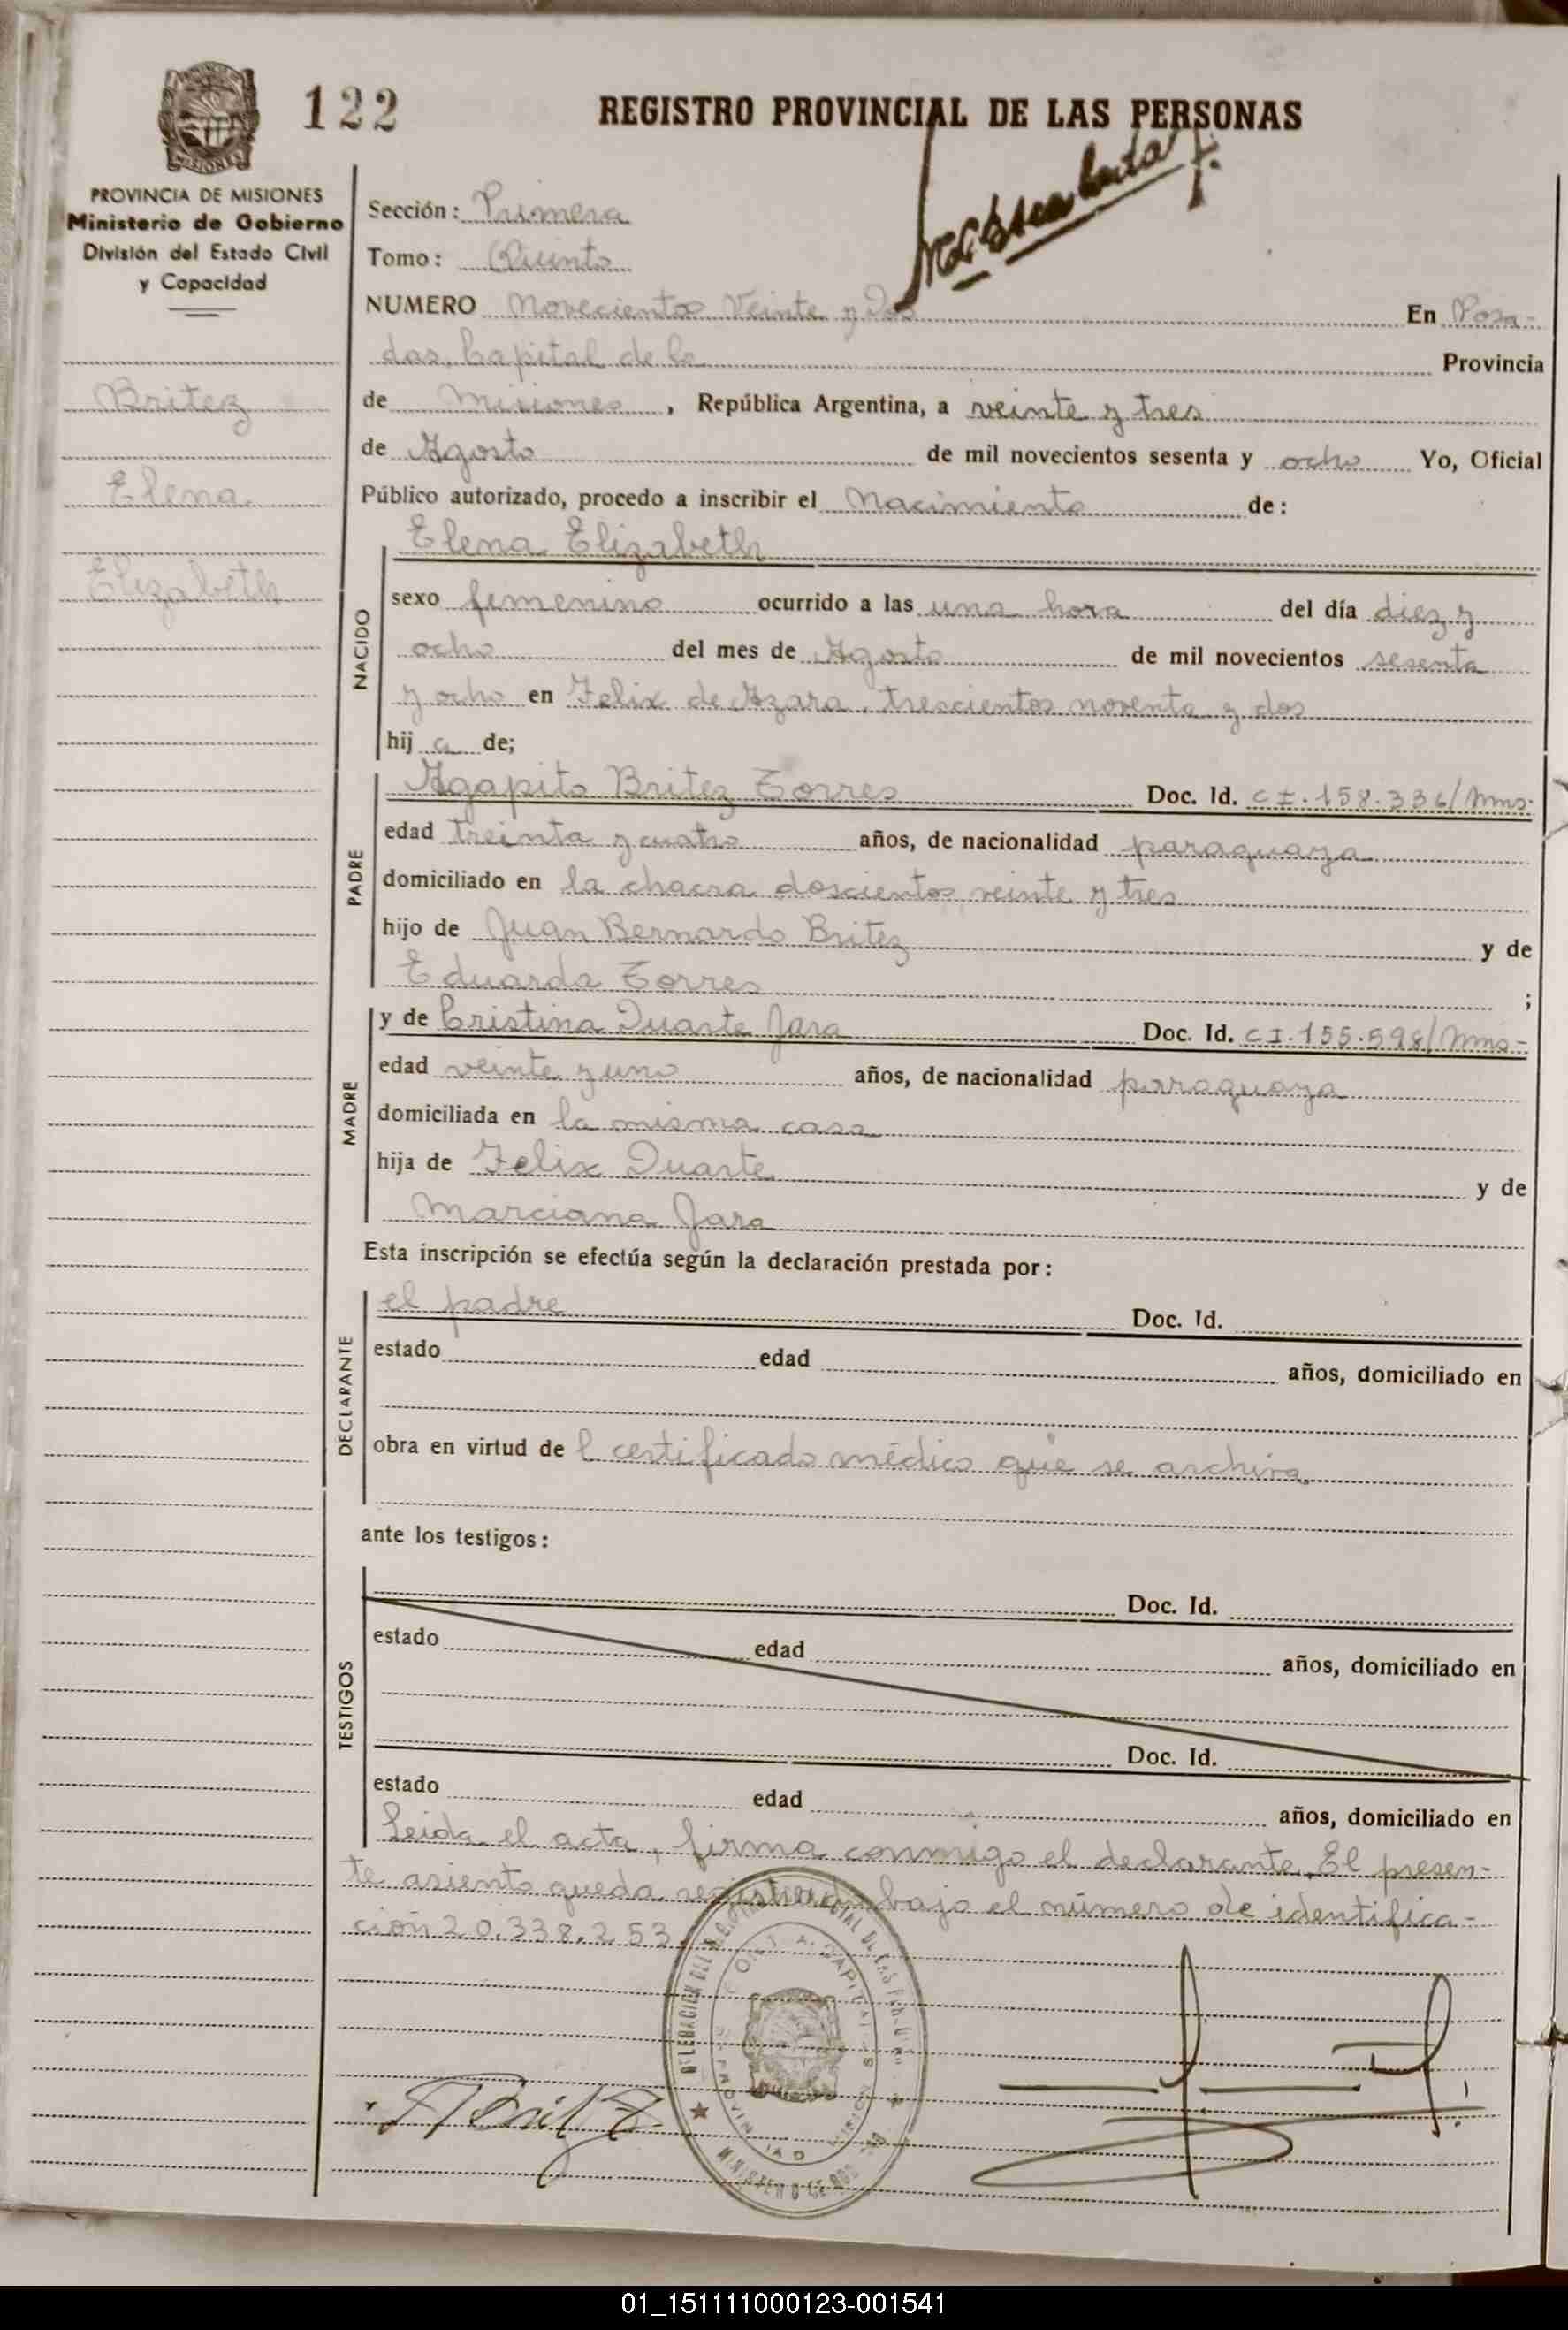 122
REGISTRO PROVINCIAL DE LAS PERSONAS
MISIONES
PROVINCIA DE MISIONES
Ministerio de Gobierno
División del Estado Civil
y Capacidad
Britez
Elena
Elizabeth
Sección: Primera
Tomo: Quinto
NUMERO Novecientos Veinte y Dos En Posa-
das, Capital de la Provincia
de Misiones, República Argentina, a veinte y tres
de Agosto de mil novecientos sesenta y ocho Yo, Oficial
Público autorizado, procedo a inscribir el Nacimiento de:
NACIDO
Elena Elizabeth
sexo femenino ocurrido a las una hora del día diez y
ocho del mes de Agosto de mil novecientos sesenta
y ocho en Felix de Azara, trescientos noventa y dos
hij a de;
PADRE
Agapito Britez Torres Doc. Id. CI. 158.336/Mns.
edad treinta y cuatro años, de nacionalidad paraguaya
domiciliado en la chacra doscientos veinte y tres
hijo de Juan Bernardo Britez y de
Eduarda Torres ;
MADRE
y de Cristina Duarte Jara Doc. Id. CI. 155.598/Mns-
edad veinte y uno años, de nacionalidad paraguaya
domiciliada en la misma casa
hija de Felix Duarte y de
Marciana Jara
Esta inscripción se efectúa según la declaración prestada por:
DECLARANTE
el padre Doc. Id.
estado edad años, domiciliado en
obra en virtud de l certificado médico que se archiva
ante los testigos:
TESTIGOS
Doc. Id.
estado edad años, domiciliado en
Doc. Id.
estado edad años, domiciliado en
Leida el acta, firma conmigo el declarante. El presen-
te asiento queda registrado bajo el número de identifica-
ción 20.338.253.
01_151111000123-001541